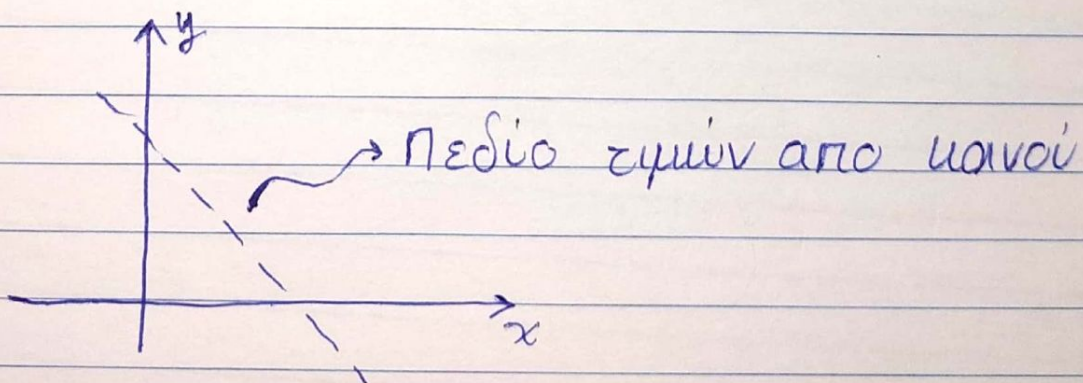 y
Πεδίο τιμών απο κοινού
x